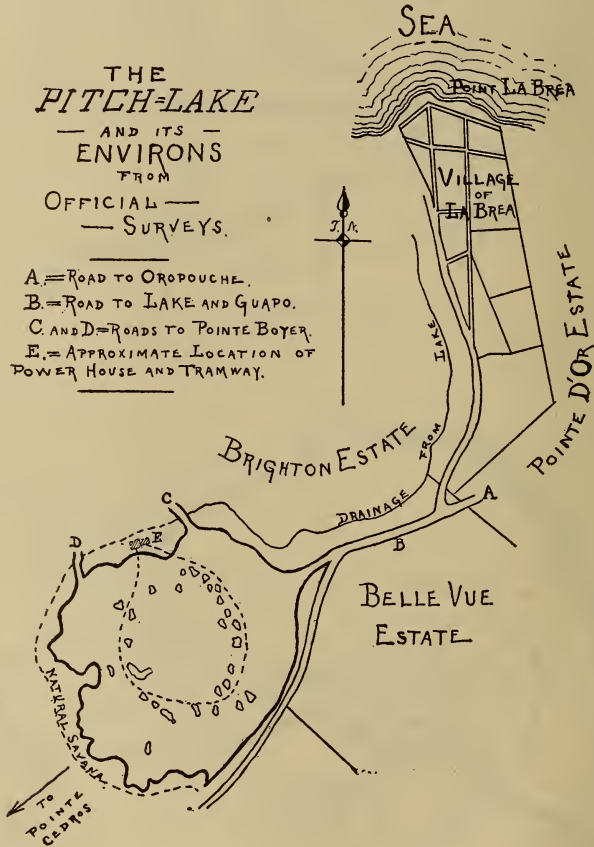 THE
PITCH=LAKE
— AND ITS —
ENVIRONS
FROM
OFFICIAL —
— SURVEYS.
A.=ROAD TO OROPOUCHE.
B.=ROAD TO LAKE AND GUAPO.
C. AND D=ROADS TO POINTE BOYER.
E.=APPROXIMATE LOCATION OF
POWER HOUSE AND TRAMWAY.
SEA
POINT LA BREA
VILLAGE
OF
LA BREA
T. N.
POINTE D'OR ESTATE
BRIGHTON ESTATE
DRAINAGE FROM LAKE
A
B
C
D
E
BELLE VUE
ESTATE
NATURAL SAVANA
TO
POINTE
CEDROS